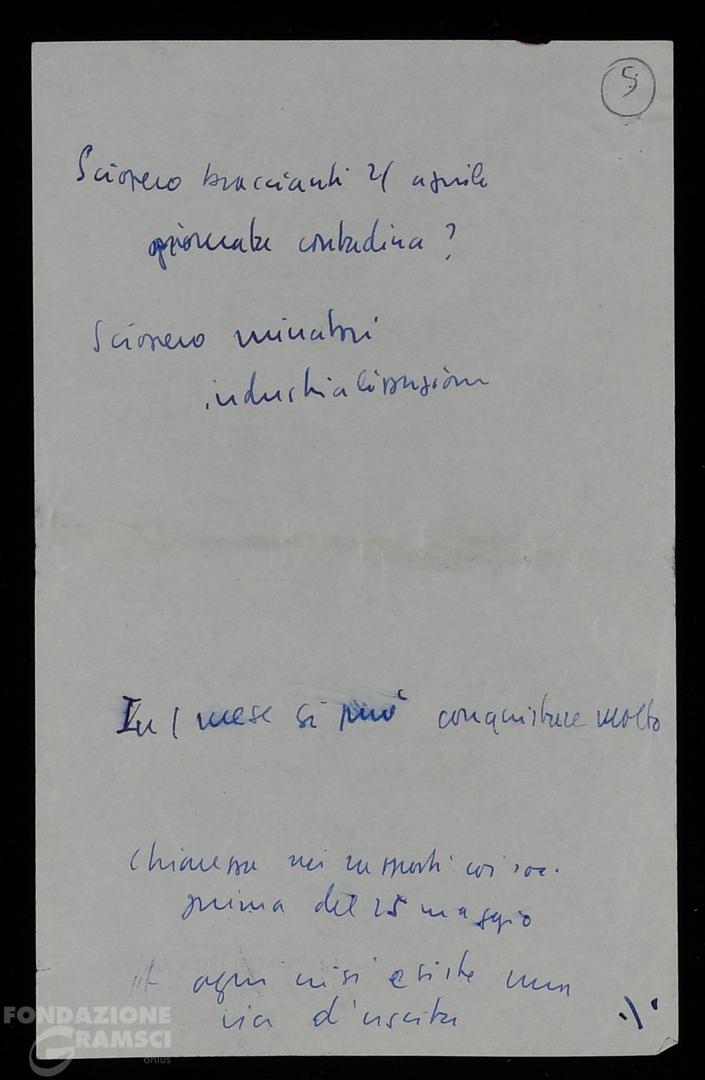 5
Sciopero braccianti 21 aprile
giornata contadina ?
Sciopero minatori
industrializzazione
In 1 mese si può conquistare molto
Chiarezza nei rapporti coi soc.
prima del 25 maggio
A ogni crisi esiste una
via d'uscita
FONDAZIONE
GRAMSCI
onlus